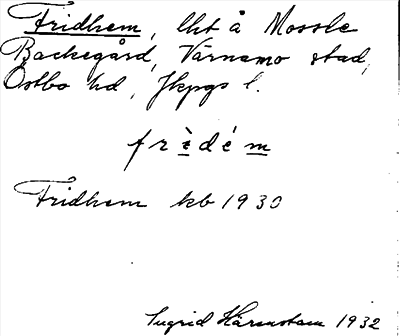 Fridhem, lht å Mossle
Backegård, Värnamo stad,
Östbo hd, Jkpgs l.
frìdém
Fridhem kb 1930
Ingrid Härenstam 1932